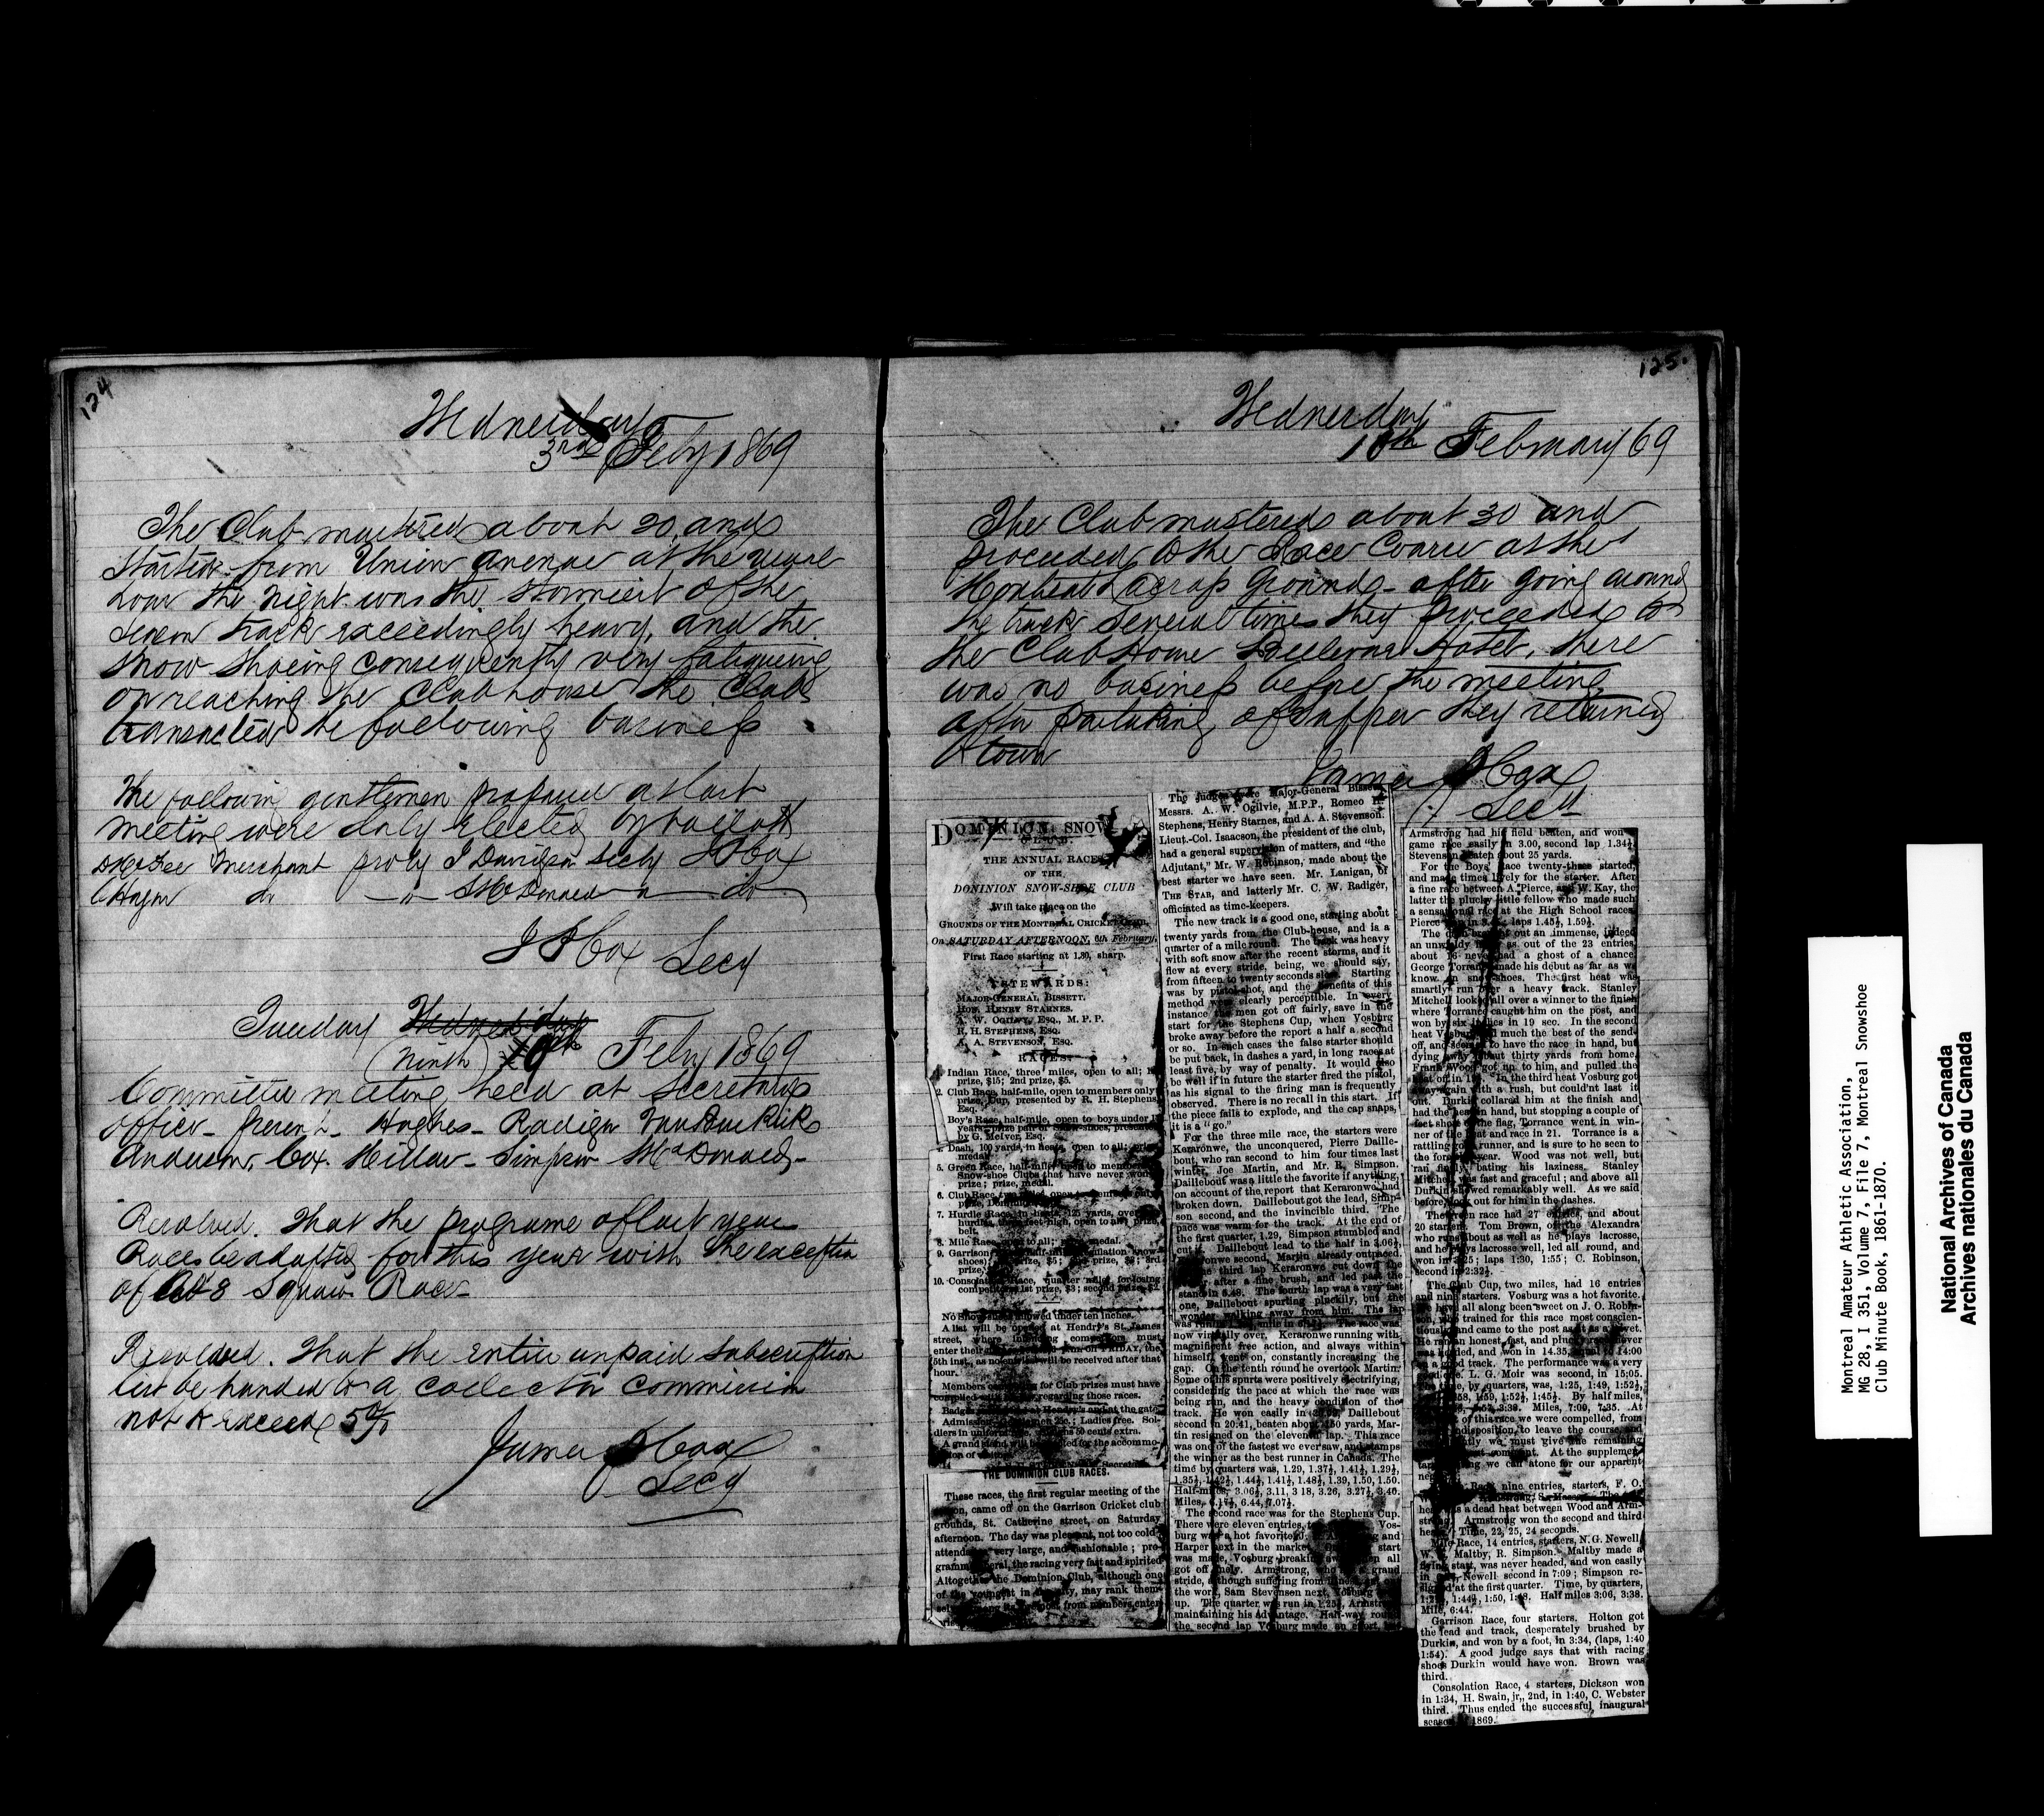 124
Wednesday
3rd Feby 1869
The Club mustered about 20, and
started from Union Avenue at the usual
hour the night was the stormiest of the
season track exceedingly heavy, and the
snow shoeing consequently very fatigueing
on reaching the Club house the Club
transacted the following business
The following gentlemen proposed at last
meeting were duly elected by ballott
Merchant pro by J Davidson secby J S Cox
do McDonald do
J S Cox Secy
Tuesday Wednesday
(Ninth) 10th Feby 1869
Committee meeting held at Secretarys
office - present - Hughes - Radiger
Anderson, Cox. Millar - Simpson McDonald -
Resolved. That the programe of last years
Races be adopted for this year with the exception
of Squaw Race -
Resolved. That the entire unpaid subscription
list be handed to a collector commission
not to exceed 5%
James S Cox
Secy
125.
Wednesday
10th February 69
The Club mustered about 30 and
proceeded to the Race Course at the
Montreal Lacrosse Grounds - after going around
the track several times they proceeded to
the Club House Hotel, there
was no business before the meeting
after partaking of supper they returned
to town
James S Cox
Secy
DOMINION SNOW
CLUB.
THE ANNUAL RACES
OF THE
DOMINION SNOW-SHOE CLUB
Will take place on the
GROUNDS OF THE MONTREAL CRICKET CLUB,
On SATURDAY AFTERNOON, 6th February,
First Race starting at 1.30, sharp.
STEWARDS:
MAJOR-GENERAL BISSETT.
HON. HENRY STARNES.
A. W. OGILVY, ESQ., M. P. P.
R. H. STEPHENS, ESQ.
A. A. STEVENSON, ESQ.
RACES:
1. Indian Race, three miles, open to all;
prize, $15; 2nd prize, $5.
2. Club Race, half-mile, open to members only
prize, Cup, presented by R. H. Stephens,
Esq.
Boy's Race, half-mile, open to boys under
years; prize pair of Snow-shoes, presented
by G. McIver, Esq.
Dash, 100 yards, in heats, open to all; prize
medal.
5. Green Race, half-mile, open to members of
Snow-shoe Clubs that have never won
prize; prize, medal.
6. Club Race, two
prize,
7. Hurdle Race, in heats, 125 yards, over
hurdles, three feet high, open to all; prize,
belt.
8. Mile Race, open to all; medal.
9. Garrison
shoes; prize, $5; prize,
10. Consolation Race, quarter mile, for losing
competitors; 1st prize, $3; second prize, $2.
No Snow-shoes allowed under ten inches.
A list will be opened at Hendry's St. James
street, where intending competitors must
enter their FRIDAY, the
5th inst., as no entries will be received after that
hour.
Members for Club prizes must have
regarding those races.
at Hendry's and at the gate.
Admission 25c.; Ladies free. Sol-
diers in uniform 50 cents extra.
A grand stand will be for the accommo-
THE DOMINION CLUB RACES.
These races, the first regular meeting of the
came off on the Garrison Cricket club
grounds, St. Catherine street, on Saturday
afternoon. The day was pleasant, not too cold
very large, and fashionable; pro-
the racing very fast and spirited
Altogether the Dominion Club, although one
of the youngest in may rank them-
from members enter
The judges were Major-General Bissett
Messrs. A. W. Ogilvie, M.P.P., Romeo H.
Stephens, Henry Starnes, and A. A. Stevenson.
Lieut.-Col. Isaacson, the president of the club,
had a general supervision of matters, and "the
Adjutant," Mr. W. Robinson, made about the
best starter we have seen. Mr. Lanigan, of
THE STAR, and latterly Mr. C. W. Radiger,
officiated as time-keepers.
The new track is a good one, starting about
twenty yards from the Club-house, and is a
quarter of a mile round. The track was heavy
with soft snow after the recent storms, and it
flew at every stride, being, we should say,
from fifteen to twenty seconds slow. Starting
was by pistol-shot, and the benefits of this
method were clearly perceptible. In every
instance the men got off fairly, save in the
start for the Stephens Cup, when Vosburg
broke away before the report a half a second
or so. In such cases the false starter should
be put back, in dashes a yard, in long races at
least five, by way of penalty. It would also
be well if in future the starter fired the pistol,
as his signal to the firing man is frequently
observed. There is no recall in this start. If
the piece fails to explode, and the cap snaps,
it is a "go."
For the three mile race, the starters were
Keraronwe, the unconquered, Pierre Daille-
bout, who ran second to him four times last
winter, Joe Martin, and Mr. R. Simpson.
Daillebout was a little the favorite if anything,
on account of the report that Keraronwe had
broken down. Daillebout got the lead, Simp-
son second, and the invincible third. The
pace was warm for the track. At the end of
the first quarter, 1.29, Simpson stumbled and
cut Daillebout lead to the half in 3.06½,
second, Martin already outpaced.
third lap Keraronwe cut down the
after a fine brush, and led past the
stand in The fourth lap was a very fast
one, Daillebout spurting pluckily, but the
wonder walking away from him. The lap
was The race was
now virtually over, Keraronwe running with
magnificent free action, and always within
himself, went on, constantly increasing the
gap. On the tenth round he overtook Martin.
Some of his spurts were positively electrifying,
considering the pace at which the race was
being run, and the heavy condition of the
track. He won easily in Daillebout
second in 20:41, beaten about 150 yards, Mar-
tin resigned on the eleventh lap. This race
was one of the fastest we ever saw, and stamps
the winner as the best runner in Canada. The
time by quarters was, 1.29, 1.37½, 1.41½, 1.29½,
1.35½, 1.42½, 1.44½, 1.41½, 1.48½, 1.39, 1.50, 1.50.
Half-miles, 3.06½, 3.11, 3 18, 3.26, 3.27½, 3.40.
Miles, 6.17½, 6.44, 7.07½.
The second race was for the Stephens Cup.
There were eleven entries, Vos-
burg was a hot favorite and
Harper next in the market. start
was made, Vosburg breaking all
got off nicely. Armstrong, who grand
stride, though suffering from
the work, Sam Stevenson next, Vosburg
up. The quarter was run in 1.25½, Armstrong
maintaining his advantage. Half-way round
the second lap Vosburg made an effort,
Armstrong had his field beaten, and won
game race easily in 3.00, second lap 1.34½
Stevenson beaten about 25 yards.
For the Boys' Race twenty-three started,
and made times lively for the starter. After
a fine race between A. Pierce, and W. Kay, the
latter the plucky little fellow who made such
a sensational race at the High School races
Pierce won in laps 1.45½, 1.59½.
The dash brought out an immense, indeed
an unwieldy as out of the 23 entries,
about 16 never had a ghost of a chance.
George Torrance made his debut as far as we
know on snow-shoes. The first heat was
smartly run over a heavy track. Stanley
Mitchell looked all over a winter to the finish
where Torrance caught him on the post, and
won by six inches in 19 sec. In the second
heat Vosburg much the best of the send-
off, and seemed to have the race in hand, but
dying away about thirty yards from home,
Frank Wood got up to him, and pulled the
heat off in In the third heat Vosburg got
away again with a rush, but could'nt last it
out. Durkin collared him at the finish and
had the heat in hand, but stopping a couple of
feet short of the flag, Torrance went in win-
ner of the heat and race in 21. Torrance is a
rattling good runner, and is sure to be seen to
the fore year. Wood was not well, but
ran finely, bating his laziness. Stanley
Mitchell was fast and graceful; and above all
Durkin showed remarkably well. As we said
before, look out for him in the dashes.
The green race had 27 entries, and about
20 starters. Tom Brown, of the Alexandra
who runs about as well as he plays lacrosse,
and he plays lacrosse well, led all round, and
won in 3:25; laps 1:30, 1:55; C. Robinson,
second in 2:32½.
The Club Cup, two miles, had 16 entries
and nine starters. Vosburg was a hot favorite.
We have all along been sweet on J. O. Robin-
son, who trained for this race most conscien-
tiously and came to the post
He ran an honest, fast, and plucky race, never
was headed, and won in 14.35, equal to 14:00
on a good track. The performance was a very
L. G. Moir was second, in 15:05.
time, by quarters, was, 1:25, 1:49, 1:52½,
1:59, 1:52½, 1:45½. By half miles,
3:38. Miles, 7:00, 7.35. At
of this race we were compelled, from
indisposition, to leave the course, and
we must give the remaining
comment. At the supplemen-
we can atone for our apparent
Race, nine entries, starters, F. O.
Armstrong,
a dead heat between Wood and Arm-
strong. Armstrong won the second and third
heats. Time, 22, 25, 24 seconds.
Mile Race, 14 entries, starters, N. G. Newell,
W. Maltby, R. Simpson. Maltby made a
flying start, was never headed, and won easily
in Newell second in 7:09; Simpson re-
signed at the first quarter. Time, by quarters,
1:44½, 1:50, Half miles 3:06, 3:38.
Mile, 6:44.
Garrison Race, four starters. Holton got
the lead and track, desperately brushed by
Durkin, and won by a foot, in 3:34, (laps, 1:40
1:54). A good judge says that with racing
shoes Durkin would have won. Brown was
third.
Consolation Race, 4 starters, Dickson won
in 1:34, H. Swain, jr., 2nd, in 1:40, C. Webster
third. Thus ended the successful inaugural
season 1869.
Montreal Amateur Athletic Association.
MG 28, I 351, Volume 7, File 7, Montreal Snowshoe
Club Minute Book, 1861-1870.
National Archives of Canada
Archives nationales du Canada